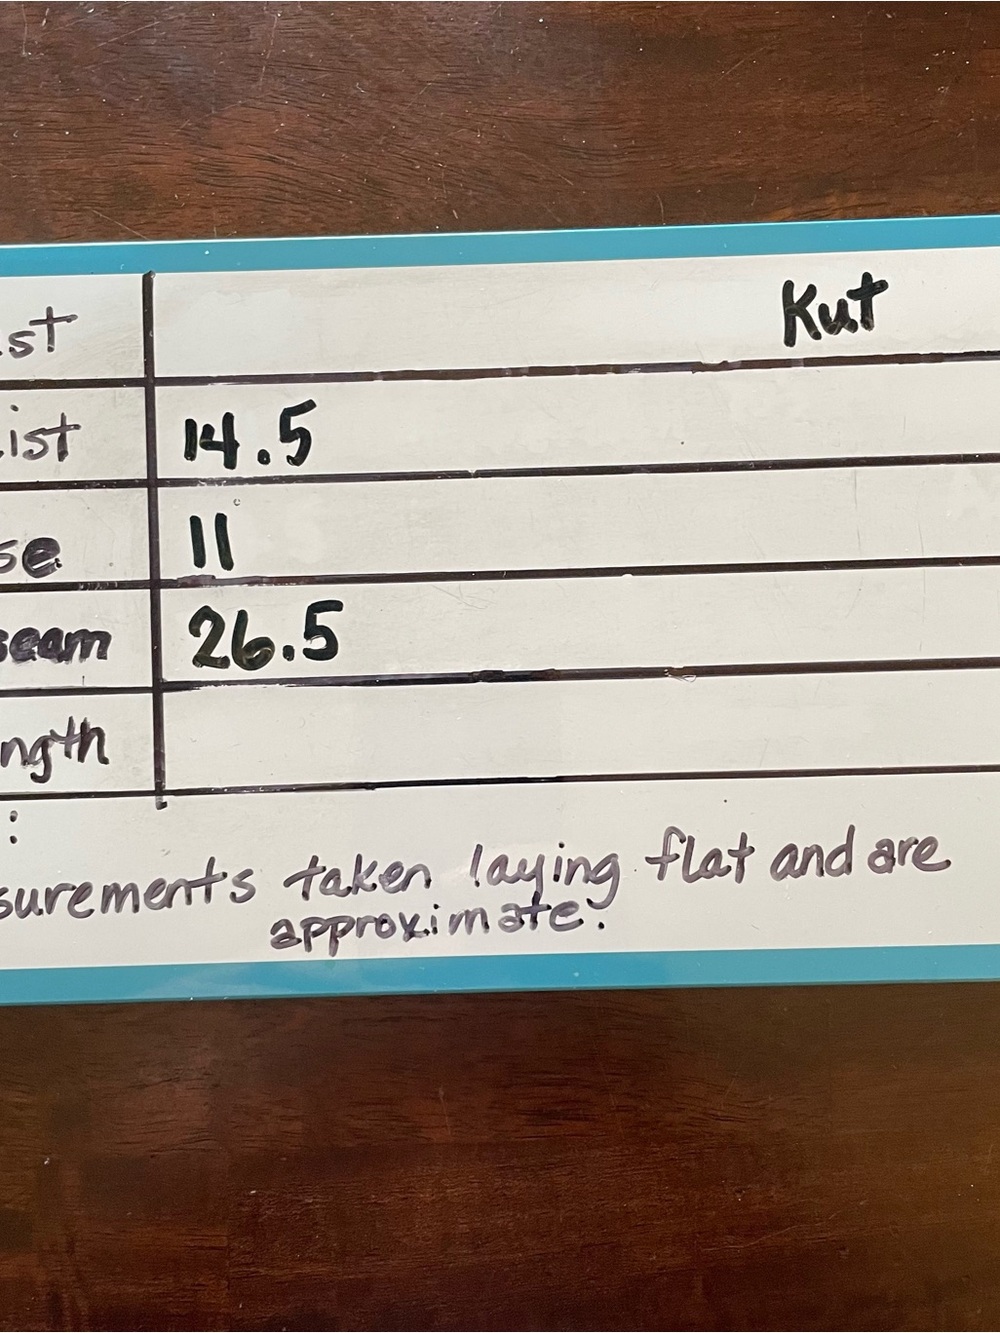 st Kut
ist 14.5
se 11
seam 26.5
ngth
:
surements taken laying flat and are
approximate.